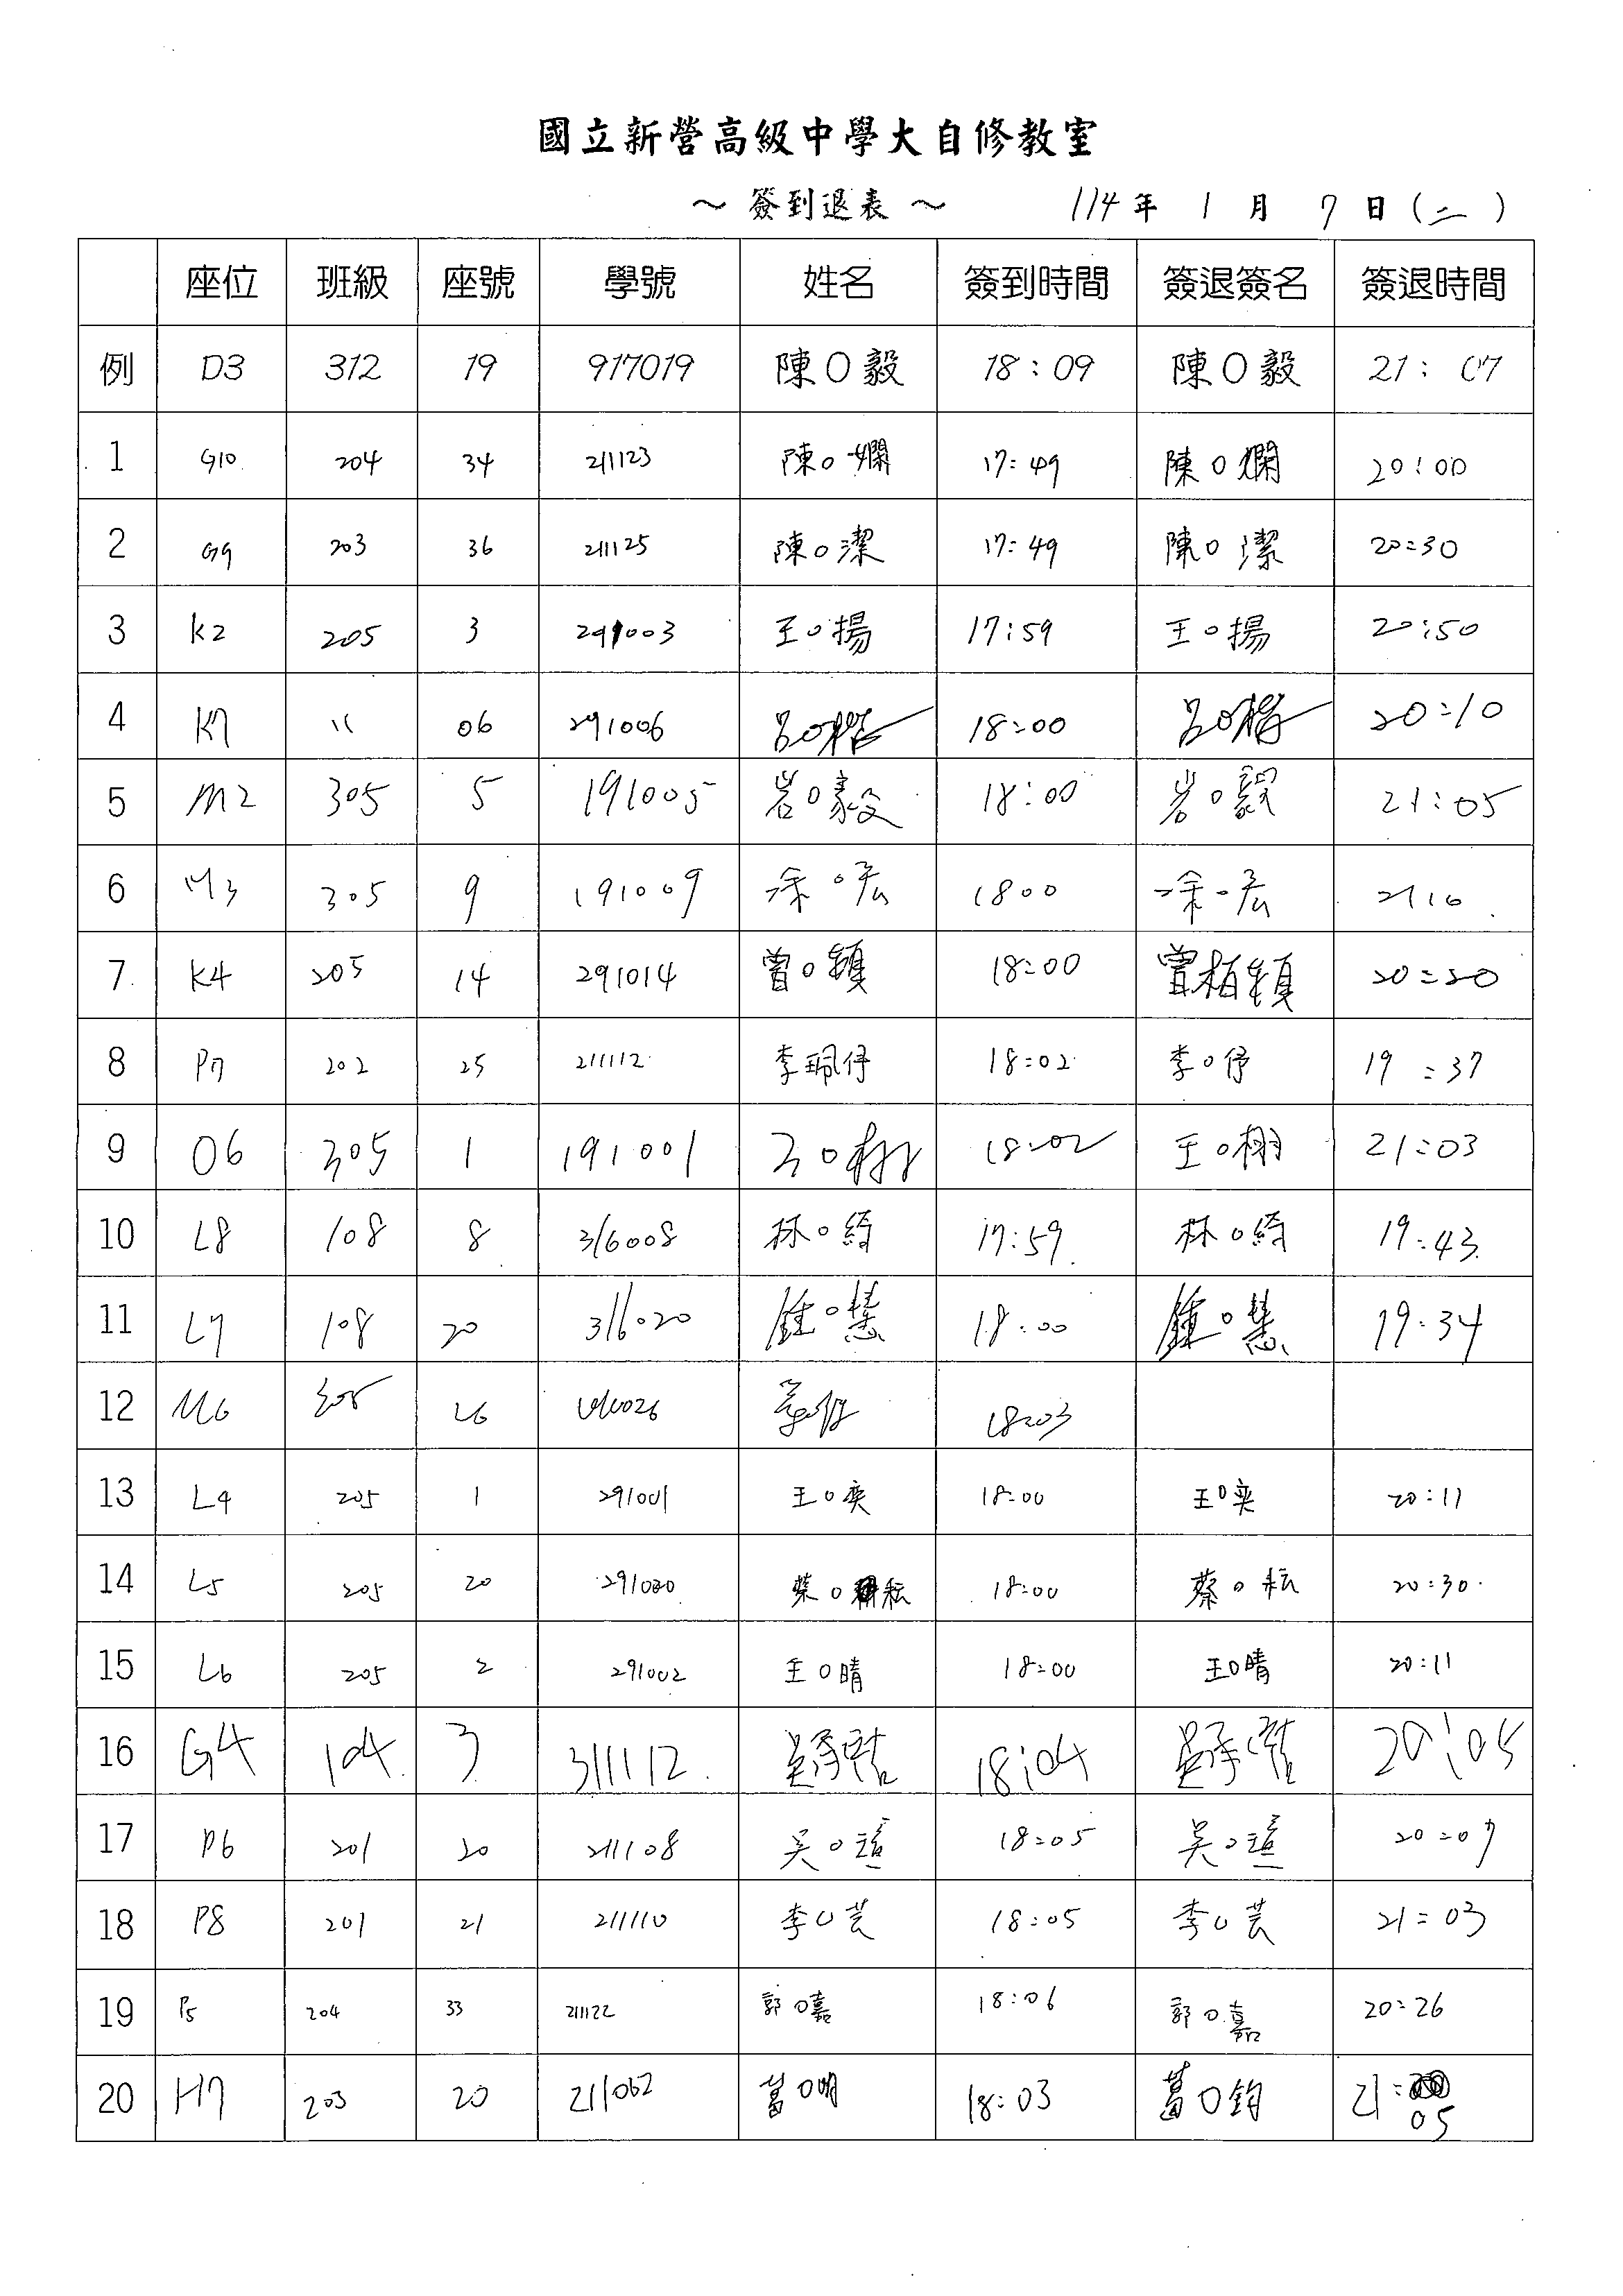 國立新營高級中學大自修教室
～ 簽到退表 ～ 114 年 1 月 7 日 (二)
座位 班級 座號 學號 姓名 簽到時間 簽退簽名 簽退時間
例 D3 312 19 917019 陳O毅 18:09 陳O毅 21:07
1 G10 204 34 211123 陳O嫻 17:49 陳O嫻 20:00
2 G9 203 36 211125 陳O潔 17:49 陳O潔 20:30
3 K2 205 3 291003 王O揚 17:59 王O揚 20:50
4 K7 〃 06 291006 18:00 20:10
5 M2 305 5 191005 岩O毅 18:00 岩O毅 21:05
6 M3 305 9 191009 涂O宏 1800 涂O宏 2110
7 K4 205 14 291014 曾O穎 18:00 曾栢穎 20:20
8 P7 202 25 211112 李珮伃 18:02 李O伃 19:37
9 O6 305 1 191001 王O栩 18:02 王O栩 21:03
10 L8 108 8 316008 林O綺 17:59 林O綺 19:43
11 L7 108 20 316020 鍾O慧 18:00 鍾O慧 19:34
12 M6 305 26 18:03
13 L4 205 1 291001 王O奕 18:00 王O奕 20:11
14 L5 205 20 291020 蔡O耘 18:00 蔡O耘 20:30
15 L6 205 2 291002 王O晴 18:00 王O晴 20:11
16 G4 104 3 311112 18:04 20:05
17 P6 201 20 211108 吳O瑄 18:05 吳O瑄 20:07
18 P8 201 21 211110 李O芸 18:05 李O芸 21:03
19 P5 204 33 211122 郭O嘉 18:06 郭O嘉 20:26
20 H7 203 20 211062 葛O明 18:03 葛O鈞 21:05